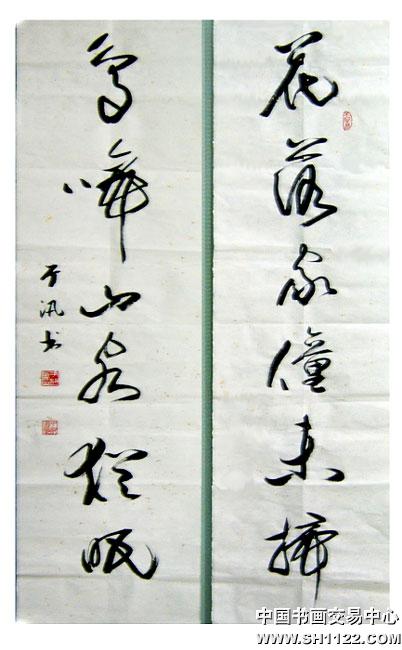 花落家僮未掃
鳥啼山客猶眠
于 书
中国书画交易中心
www.SH1122.com